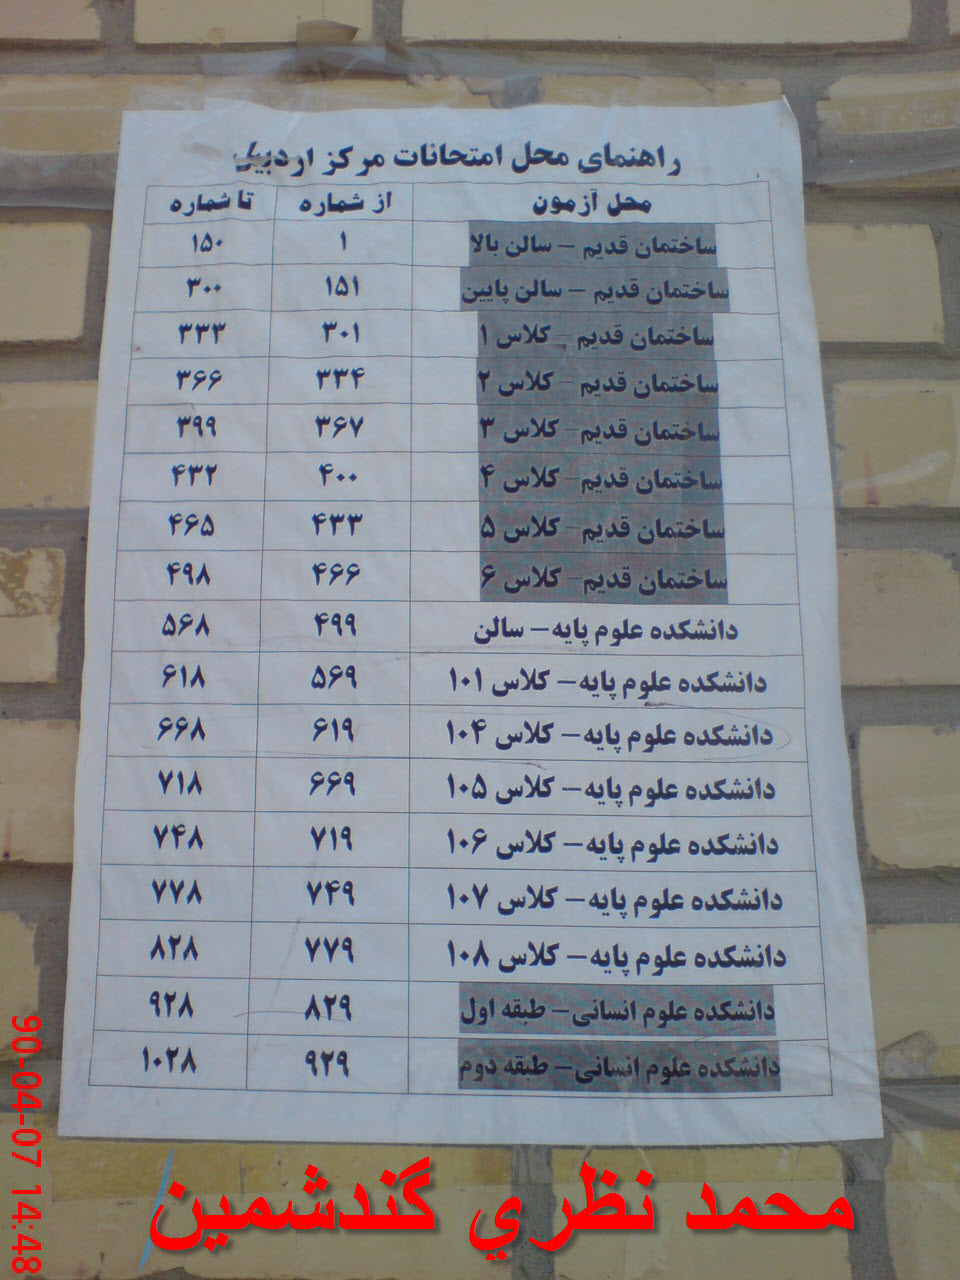 راهنمای محل امتحانات مرکز اردبیل
محل آزمون از شماره تا شماره
ساختمان قدیم – سالن بالا ۱ ۱۵۰
ساختمان قدیم – سالن پایین ۱۵۱ ۳۰۰
ساختمان قدیم – کلاس ۱ ۳۰۱ ۳۳۳
ساختمان قدیم – کلاس ۲ ۳۳۴ ۳۶۶
ساختمان قدیم – کلاس ۳ ۳۶۷ ۳۹۹
ساختمان قدیم – کلاس ۴ ۴۰۰ ۴۳۲
ساختمان قدیم – کلاس ۵ ۴۳۳ ۴۶۵
ساختمان قدیم – کلاس ۶ ۴۶۶ ۴۹۸
دانشکده علوم پایه – سالن ۴۹۹ ۵۶۸
دانشکده علوم پایه – کلاس ۱۰۱ ۵۶۹ ۶۱۸
دانشکده علوم پایه – کلاس ۱۰۴ ۶۱۹ ۶۶۸
دانشکده علوم پایه – کلاس ۱۰۵ ۶۶۹ ۷۱۸
دانشکده علوم پایه – کلاس ۱۰۶ ۷۱۹ ۷۴۸
دانشکده علوم پایه – کلاس ۱۰۷ ۷۴۹ ۷۷۸
دانشکده علوم پایه – کلاس ۱۰۸ ۷۷۹ ۸۲۸
دانشکده علوم انسانی – طبقه اول ۸۲۹ ۹۲۸
دانشکده علوم انسانی – طبقه دوم ۹۲۹ ۱۰۲۸
90-04-07 14:48
محمد نظري گندشمین